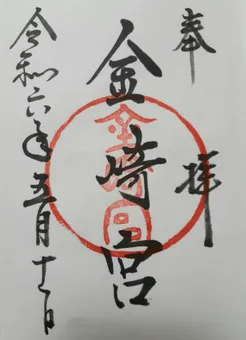 奉拝
金崎宮
金崎宮
令和六年五月十一日